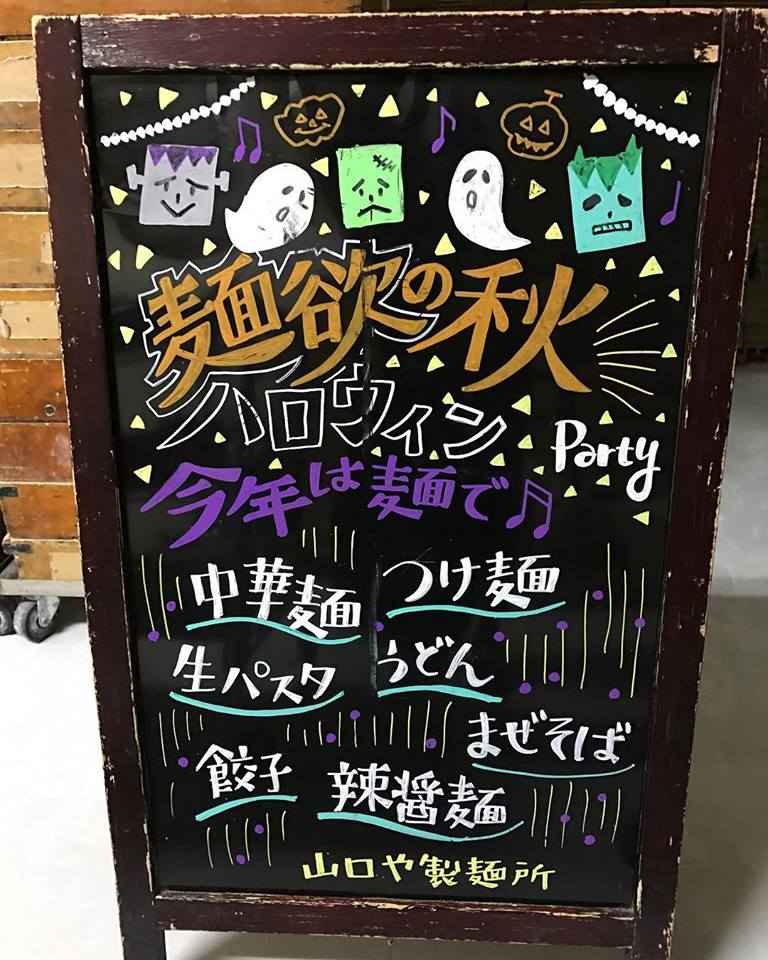 麺欲の秋
ハロウィン Party
今年は麺で♫
中華麺 つけ麺
生パスタ うどん
まぜそば
餃子 辣醤麺
山口や製麺所